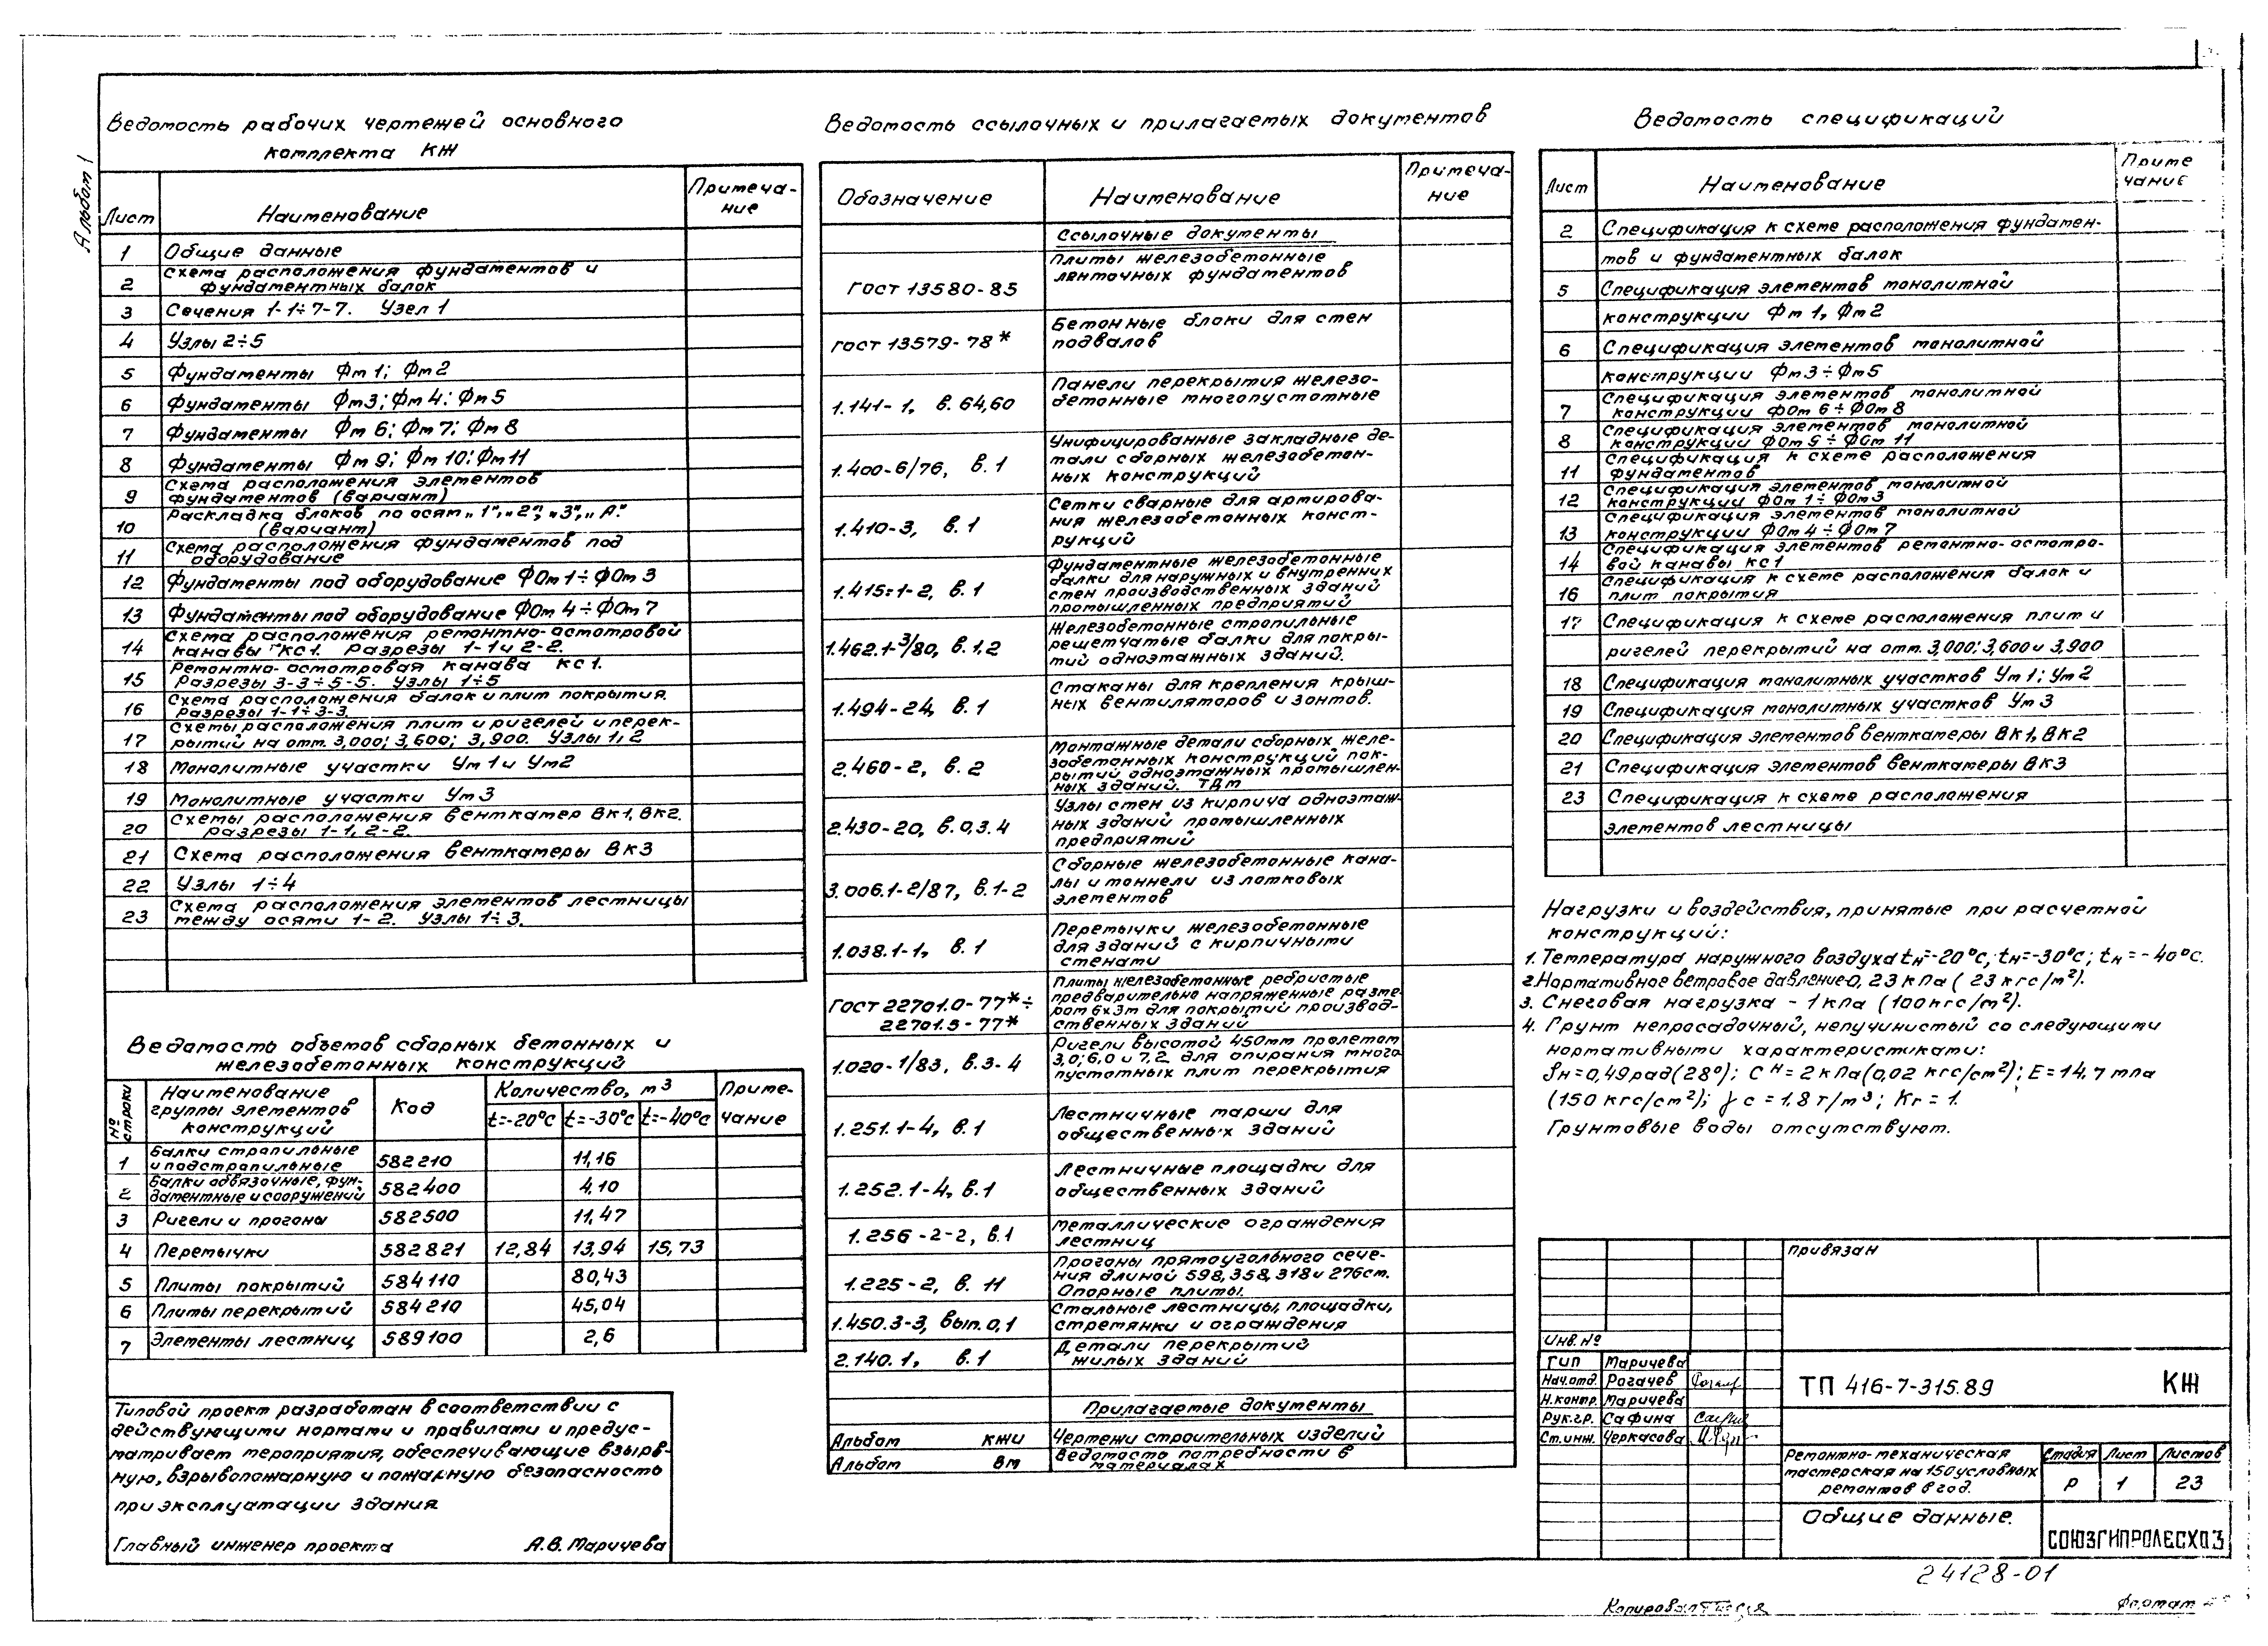 Альбом 1
Ведомость рабочих чертежей основного
комплекта КЖ
Лист
Наименование
Примеча-
ние
1 Общие данные
2 Схема расположения фундаментов и
фундаментных балок
3 Сечения 1-1÷7-7. Узел 1
4 Узлы 2÷5
5 Фундаменты Фм1; Фм2
6 Фундаменты Фм3; Фм4; Фм5
7 Фундаменты Фм6; Фм7; Фм8
8 Фундаменты Фм9; Фм10; Фм11
9 Схема расположения элементов
фундаментов (вариант)
10 Раскладка блоков по осям „1", „2", „3", „А."
(вариант)
11 Схема расположения фундаментов под
оборудование
12 Фундаменты под оборудование ФОм1÷ФОм3
13 Фундаменты под оборудование ФОм4÷ФОм7
14 Схема расположения ремонтно-осмотровой
канавы КС1. Разрезы 1-1 и 2-2.
15 Ремонтно-осмотровая канава КС1.
Разрезы 3-3÷5-5. Узлы 1÷5
16 Схема расположения балок и плит покрытия.
Разрезы 1-1÷3-3.
17 Схемы расположения плит и ригелей и перек-
рытий на отм. 3,000; 3,600; 3,900. Узлы 1,2
18 Монолитные участки Ум1 и Ум2
19 Монолитные участки Ум3
20 Схемы расположения венткамер ВК1, ВК2.
Разрезы 1-1, 2-2.
21 Схема расположения венткамеры ВК3
22 Узлы 1÷4
23 Схема расположения элементов лестницы
между осями 1-2. Узлы 1÷3.
Ведомость объемов сборных бетонных и
железобетонных конструкций
№ строки
Наименование
группы элементов
конструкций
Код
Количество, м³
t=-20°С t=-30°С t=-40°С
Приме-
чание
1 Балки стропильные
и подстропильные 582210 11,16
2 Балки обвязочные, фун-
даментные и сооружений 582400 4,10
3 Ригели и прогоны 582500 11,47
4 Перемычки 582821 12,84 13,94 15,73
5 Плиты покрытий 584110 80,43
6 Плиты перекрытий 584210 45,04
7 Элементы лестниц 589100 2,6
Типовой проект разработан в соответствии с
действующими нормами и правилами и предус-
матривает мероприятия, обеспечивающие взрыв-
ную, взрывопожарную и пожарную безопасность
при эксплуатации здания
Главный инженер проекта А.В. Маричева
Ведомость ссылочных и прилагаемых документов
Обозначение
Наименование
Примеча-
ние
Ссылочные документы
ГОСТ 13580-85 Плиты железобетонные
ленточных фундаментов
ГОСТ 13579-78* Бетонные блоки для стен
подвалов
1.141-1, в. 64,60 Панели перекрытия железо-
бетонные многопустотные
1.400-6/76, в.1 Унифицированные закладные де-
тали сборных железобетон-
ных конструкций
1.410-3, в.1 Сетки сварные для армирова-
ния железобетонных конст-
рукций
1.415-1-2, в.1 Фундаментные железобетонные
балки для наружных и внутренних
стен производственных зданий
промышленных предприятий
1.462.1-3/80, в.1.2 Железобетонные стропильные
решетчатые балки для покры-
тий одноэтажных зданий.
1.494-24, в.1 Стаканы для крепления крыш-
ных вентиляторов и зонтов.
2.460-2, в. 2 Монтажные детали сборных желе-
зобетонных конструкций пок-
рытий одноэтажных промышлен-
ных зданий. ТДМ
2.430-20, в.0,3.4 Узлы стен из кирпича одноэтаж-
ных зданий промышленных
предприятий
3.006.1-2/87, в.1-2 Сборные железобетонные кана-
лы и тоннели из лотковых
элементов
1.038.1-1, в.1 Перемычки железобетонные
для зданий с кирпичными
стенами
ГОСТ 22701.0-77*÷
22701.5-77* Плиты железобетонные ребристые
предварительно напряженные разме-
ром 6х3м для покрытий производ-
ственных зданий
1.020-1/83, в.3-4 Ригели высотой 450мм пролетом
3,0; 6,0 и 7,2 для опирания много
пустотных плит перекрытия
1.251.1-4, в.1 Лестничные марши для
общественных зданий
1.252.1-4, в.1 Лестничные площадки для
общественных зданий
1.256-2-2, в.1 Металлические ограждения
лестниц
1.225-2, в. 11 Прогоны прямоугольного сече-
ния длиной 598, 358, 318 и 276см.
Опорные плиты.
1.450.3-3, вып.0,1 Стальные лестницы, площадки,
стремянки и ограждения
2.140.1, в.1 Детали перекрытий
жилых зданий
Прилагаемые документы
Альбом КЖИ Чертежи строительных изделий
Альбом ВМ Ведомость потребности в
материалах
Ведомость спецификаций
Лист
Наименование
Приме
чание
2 Спецификация к схеме расположения фундамен-
тов и фундаментных балок
5 Спецификация элементов монолитной
конструкции Фм1, Фм2
6 Спецификация элементов монолитной
конструкции Фм3÷Фм5
7 Спецификация элементов монолитной
конструкции ФОм6÷ФОм8
8 Спецификация элементов монолитной
конструкции ФОм9÷ФОм11
11 Спецификация к схеме расположения
фундаментов
12 Спецификация элементов монолитной
конструкции ФОм1÷ФОм3
13 Спецификация элементов монолитной
конструкции ФОм4÷ФОм7
14 Спецификация элементов ремонтно-осмотро-
вой канавы КС1
16 Спецификация к схеме расположения балок и
плит покрытия
17 Спецификация к схеме расположения плит и
ригелей перекрытий на отм. 3,000; 3,600 и 3,900
18 Спецификация монолитных участков Ум1; Ум2
19 Спецификация монолитных участков Ум3
20 Спецификация элементов венткамеры ВК1, ВК2
21 Спецификация элементов венткамеры ВК3
23 Спецификация к схеме расположения
элементов лестницы
Нагрузки и воздействия, принятые при расчетной
конструкций:
1. Температура наружного воздуха tн=-20°С; tн=-30°С; tн=-40°С.
2. Нормативное ветровое давление-0,23 кПа (23 кгс/м²).
3. Снеговая нагрузка - 1 кПа (100 кгс/м²).
4. Грунт непросадочный, непучинистый со следующими
нормативными характеристиками:
ϕн=0,49 рад (28°); Сн=2 кПа (0,02 кгс/см²); Е=14,7 мпа
(150 кгс/см²); γс=1,8 т/м³; Кг=1.
Грунтовые воды отсутствуют.
Привязан
Инв.№
ГИП Маричева
Нач.отд. Рогачев
Н.контр. Маричева
Рук.гр. Сафина
Ст.инж. Черкасова
ТП 416-7-315.89 КЖ
Ремонтно-механическая
мастерская на 150 условных
ремонтов в год.
Стадия Лист Листов
Р 1 23
Общие данные.
СОЮЗГИПРОЛЕСХОЗ
24128-01
Копировал
Формат